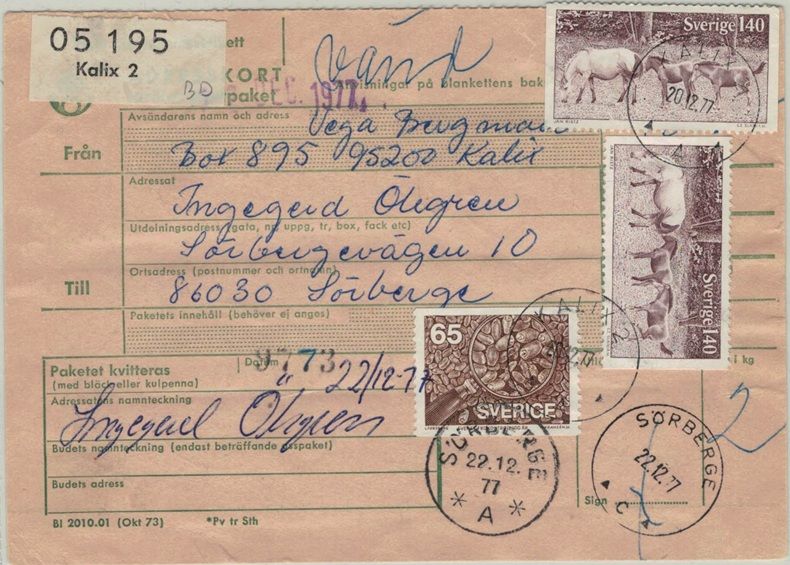 05 195
Kalix 2
BD
ett
KORT
paket
vänd
Anvisningar på blankettens bak
DEC. 1977
Sverige 140
KALIX 2
20.12.77
Avsändarens namn och adress
Från
Vega Bergman
Box 895 95200 Kalix
Adressat
Ingegerd Öhgren
Utdelningsadress (gata, nr, uppg, tr, box, fack etc)
Sörbergevägen 10
Ortsadress (postnummer och ortnamn)
Till
86030 Sörberge
Paketets innehåll (behöver ej anges)
Sverige 140
KALIX 2
20.12.77
65
SVERIGE
Paketet kvitteras
(med bläck eller kulpenna)
Datum
9773
22/12-77
i kg
2
Adressatens namnteckning
Ingegerd Öhgren
Budets namnteckning (endast beträffande esspaket)
Budets adress
SÖRBERGE
22.12.
77
* A *
SÖRBERGE
22.12.77
C
Sign
BI 2010.01 (Okt 73)
*Pv tr Sth